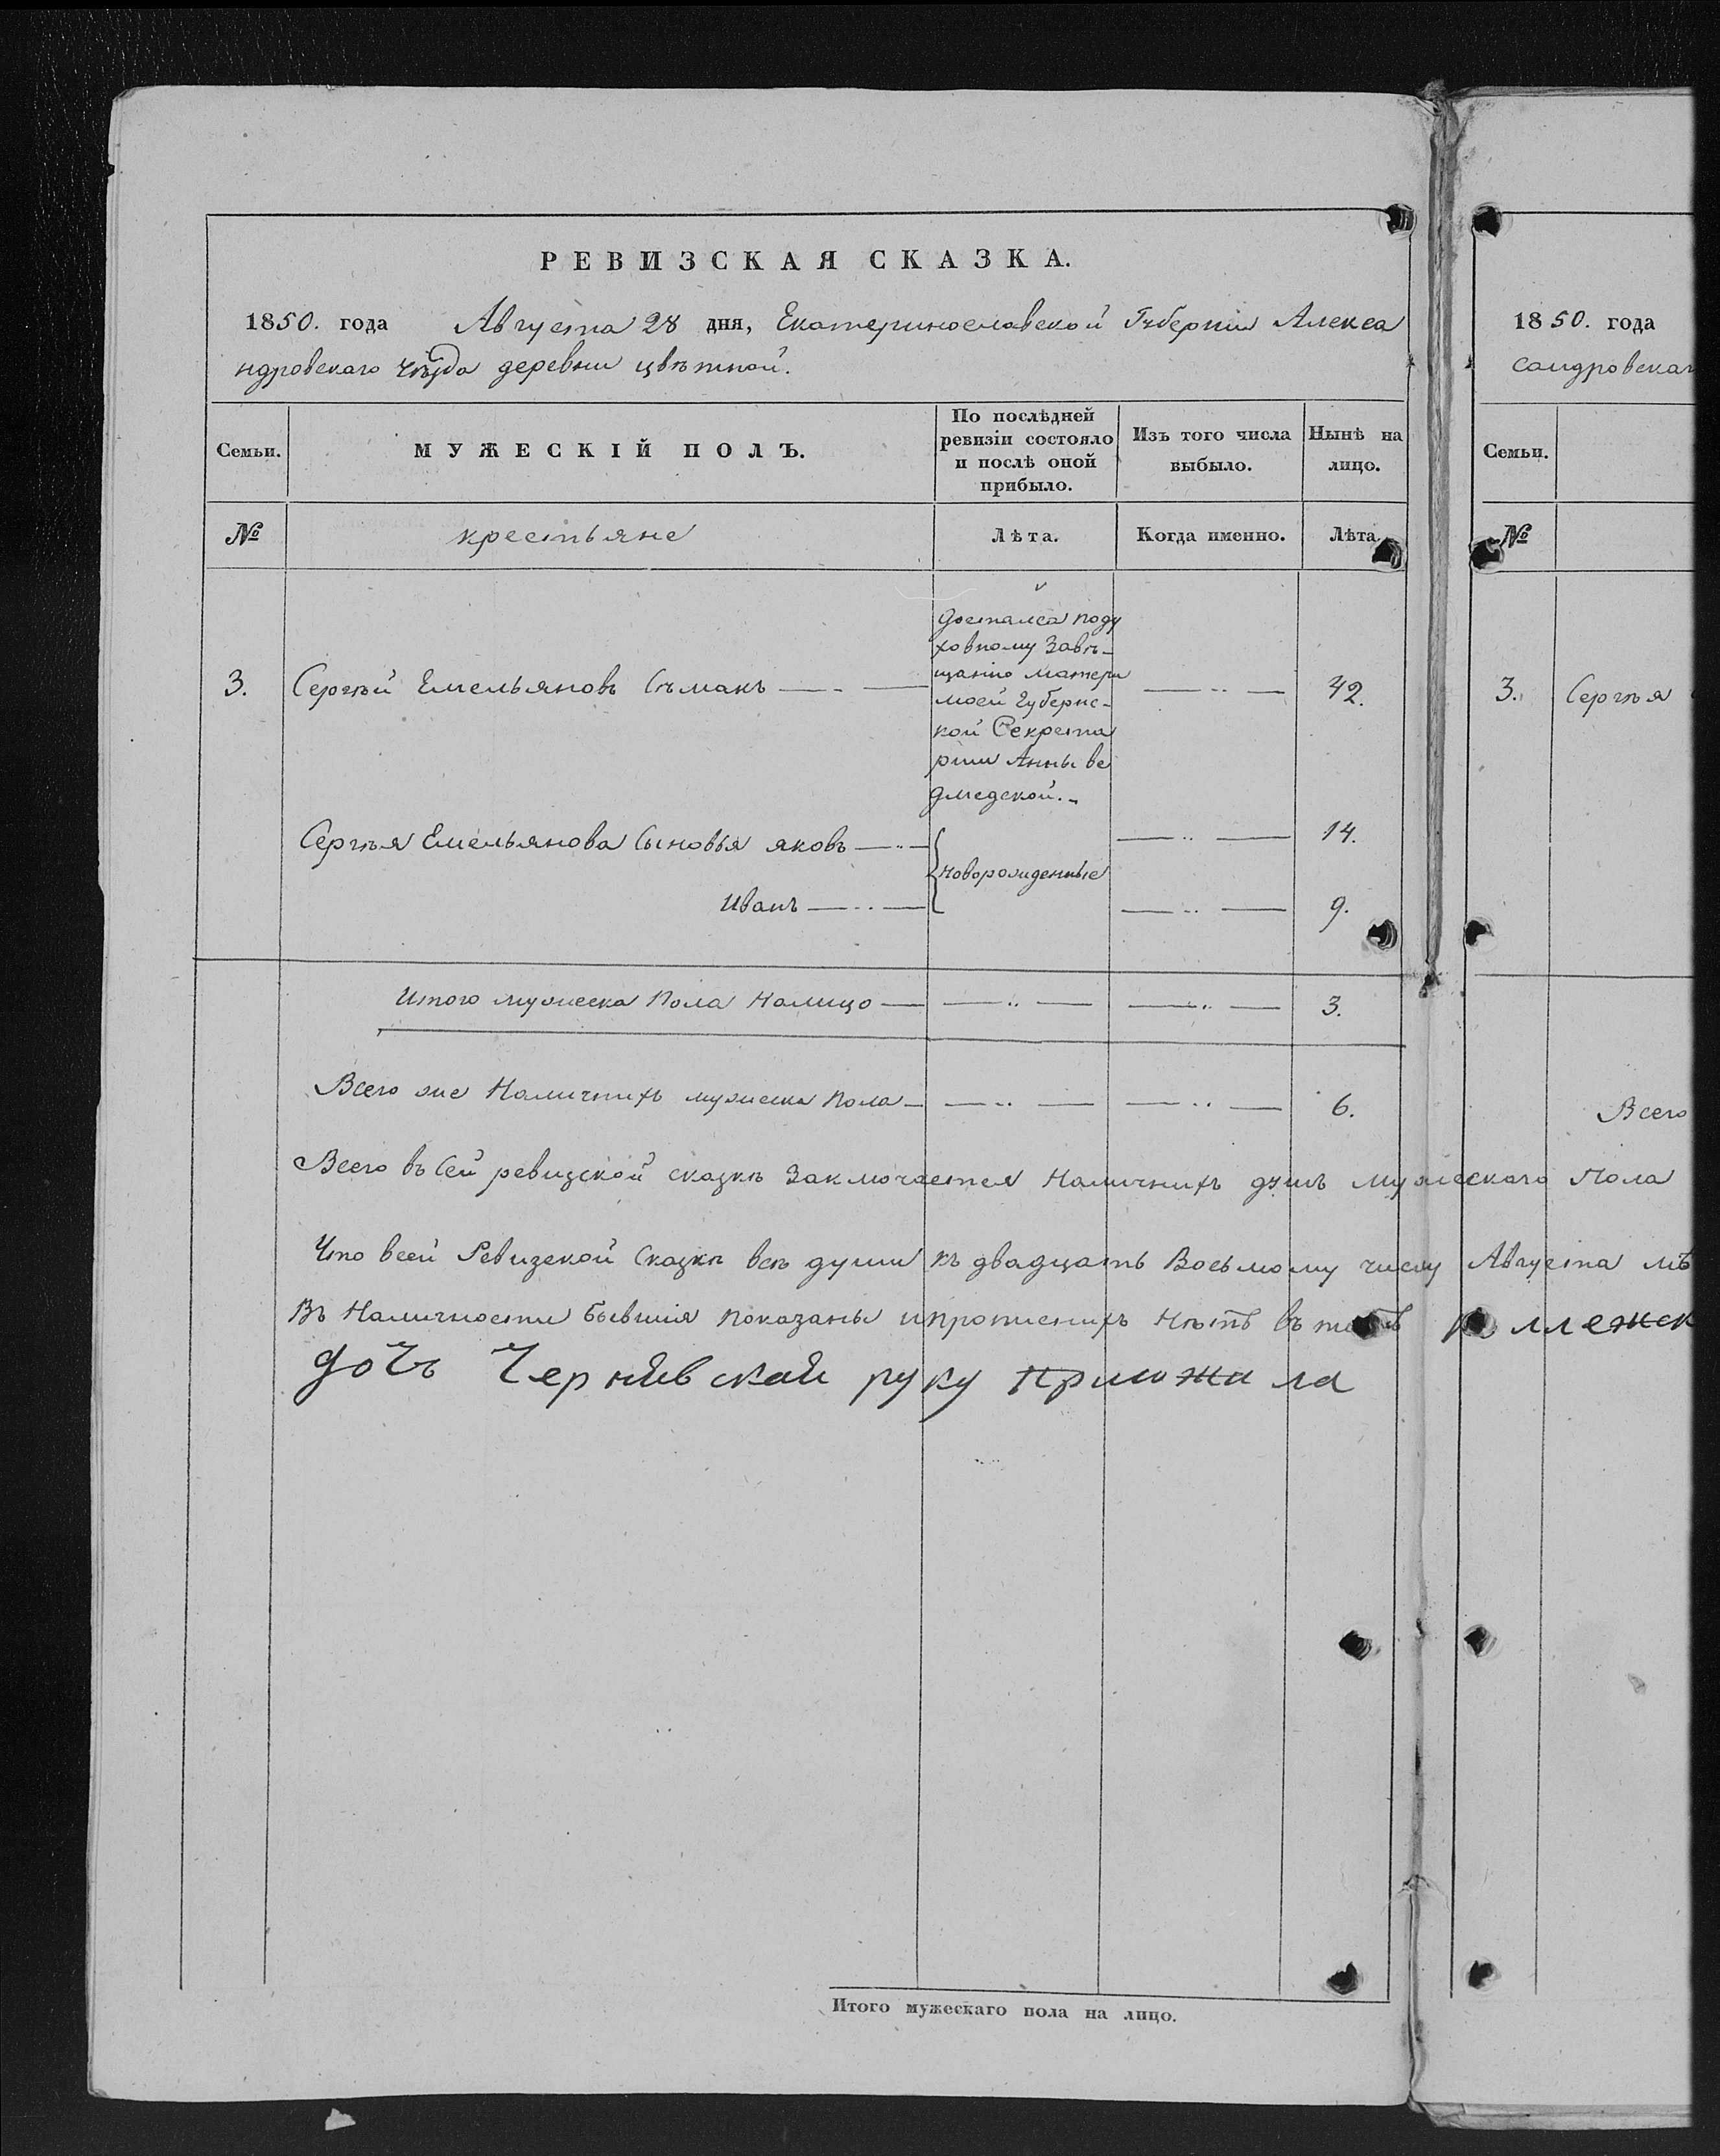 РЕВИЗСКАЯ СКАЗКА.
1850. года Августа 28 дня, Екатеринославской Губернии Алекса
ндровскаго уѣзда деревни цвѣтной.
Семьи.
МУЖЕСКІЙ ПОЛЪ.
По послѣдней
ревизіи состояло
и послѣ оной
прибыло.
Изъ того числа
выбыло.
Нынѣ на
лицо.
№
крестьяне
Лѣта.
Когда именно.
Лѣта.
3. Сергѣй Емельяновъ 42.
досталса поду
ховному Завѣ-
щанію матери
моей Губернс-
кой Секрета
рши Анны ве
Сергѣя Емельянова Сыновья яковъ 14.
новорожденные
Иванъ 9.
Итого мужеска Пола Налицо 3.
Всего же Наличнихъ мужеска Пола 6.
Всего въ Сей ревизской сказкѣ Заключается Наличнихъ душъ мужескаго Пола
Что всей Ревизской Сказкѣ всѣ души къ двадцать Восьмому числу Августа мѣ
Въ Наличности бывшія показаны ипрописнихъ Нѣтъ въ
дочъ руку приложила
Итого мужескаго пола на лицо.
1850. года
сандровскаг
Семьи.
№
3. Сергѣя
Всего